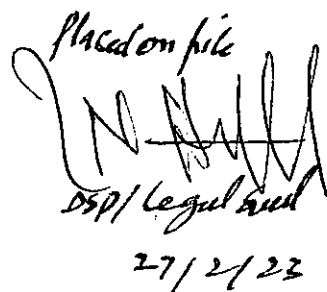 Placed on file
DSP/Legal
27/2/23